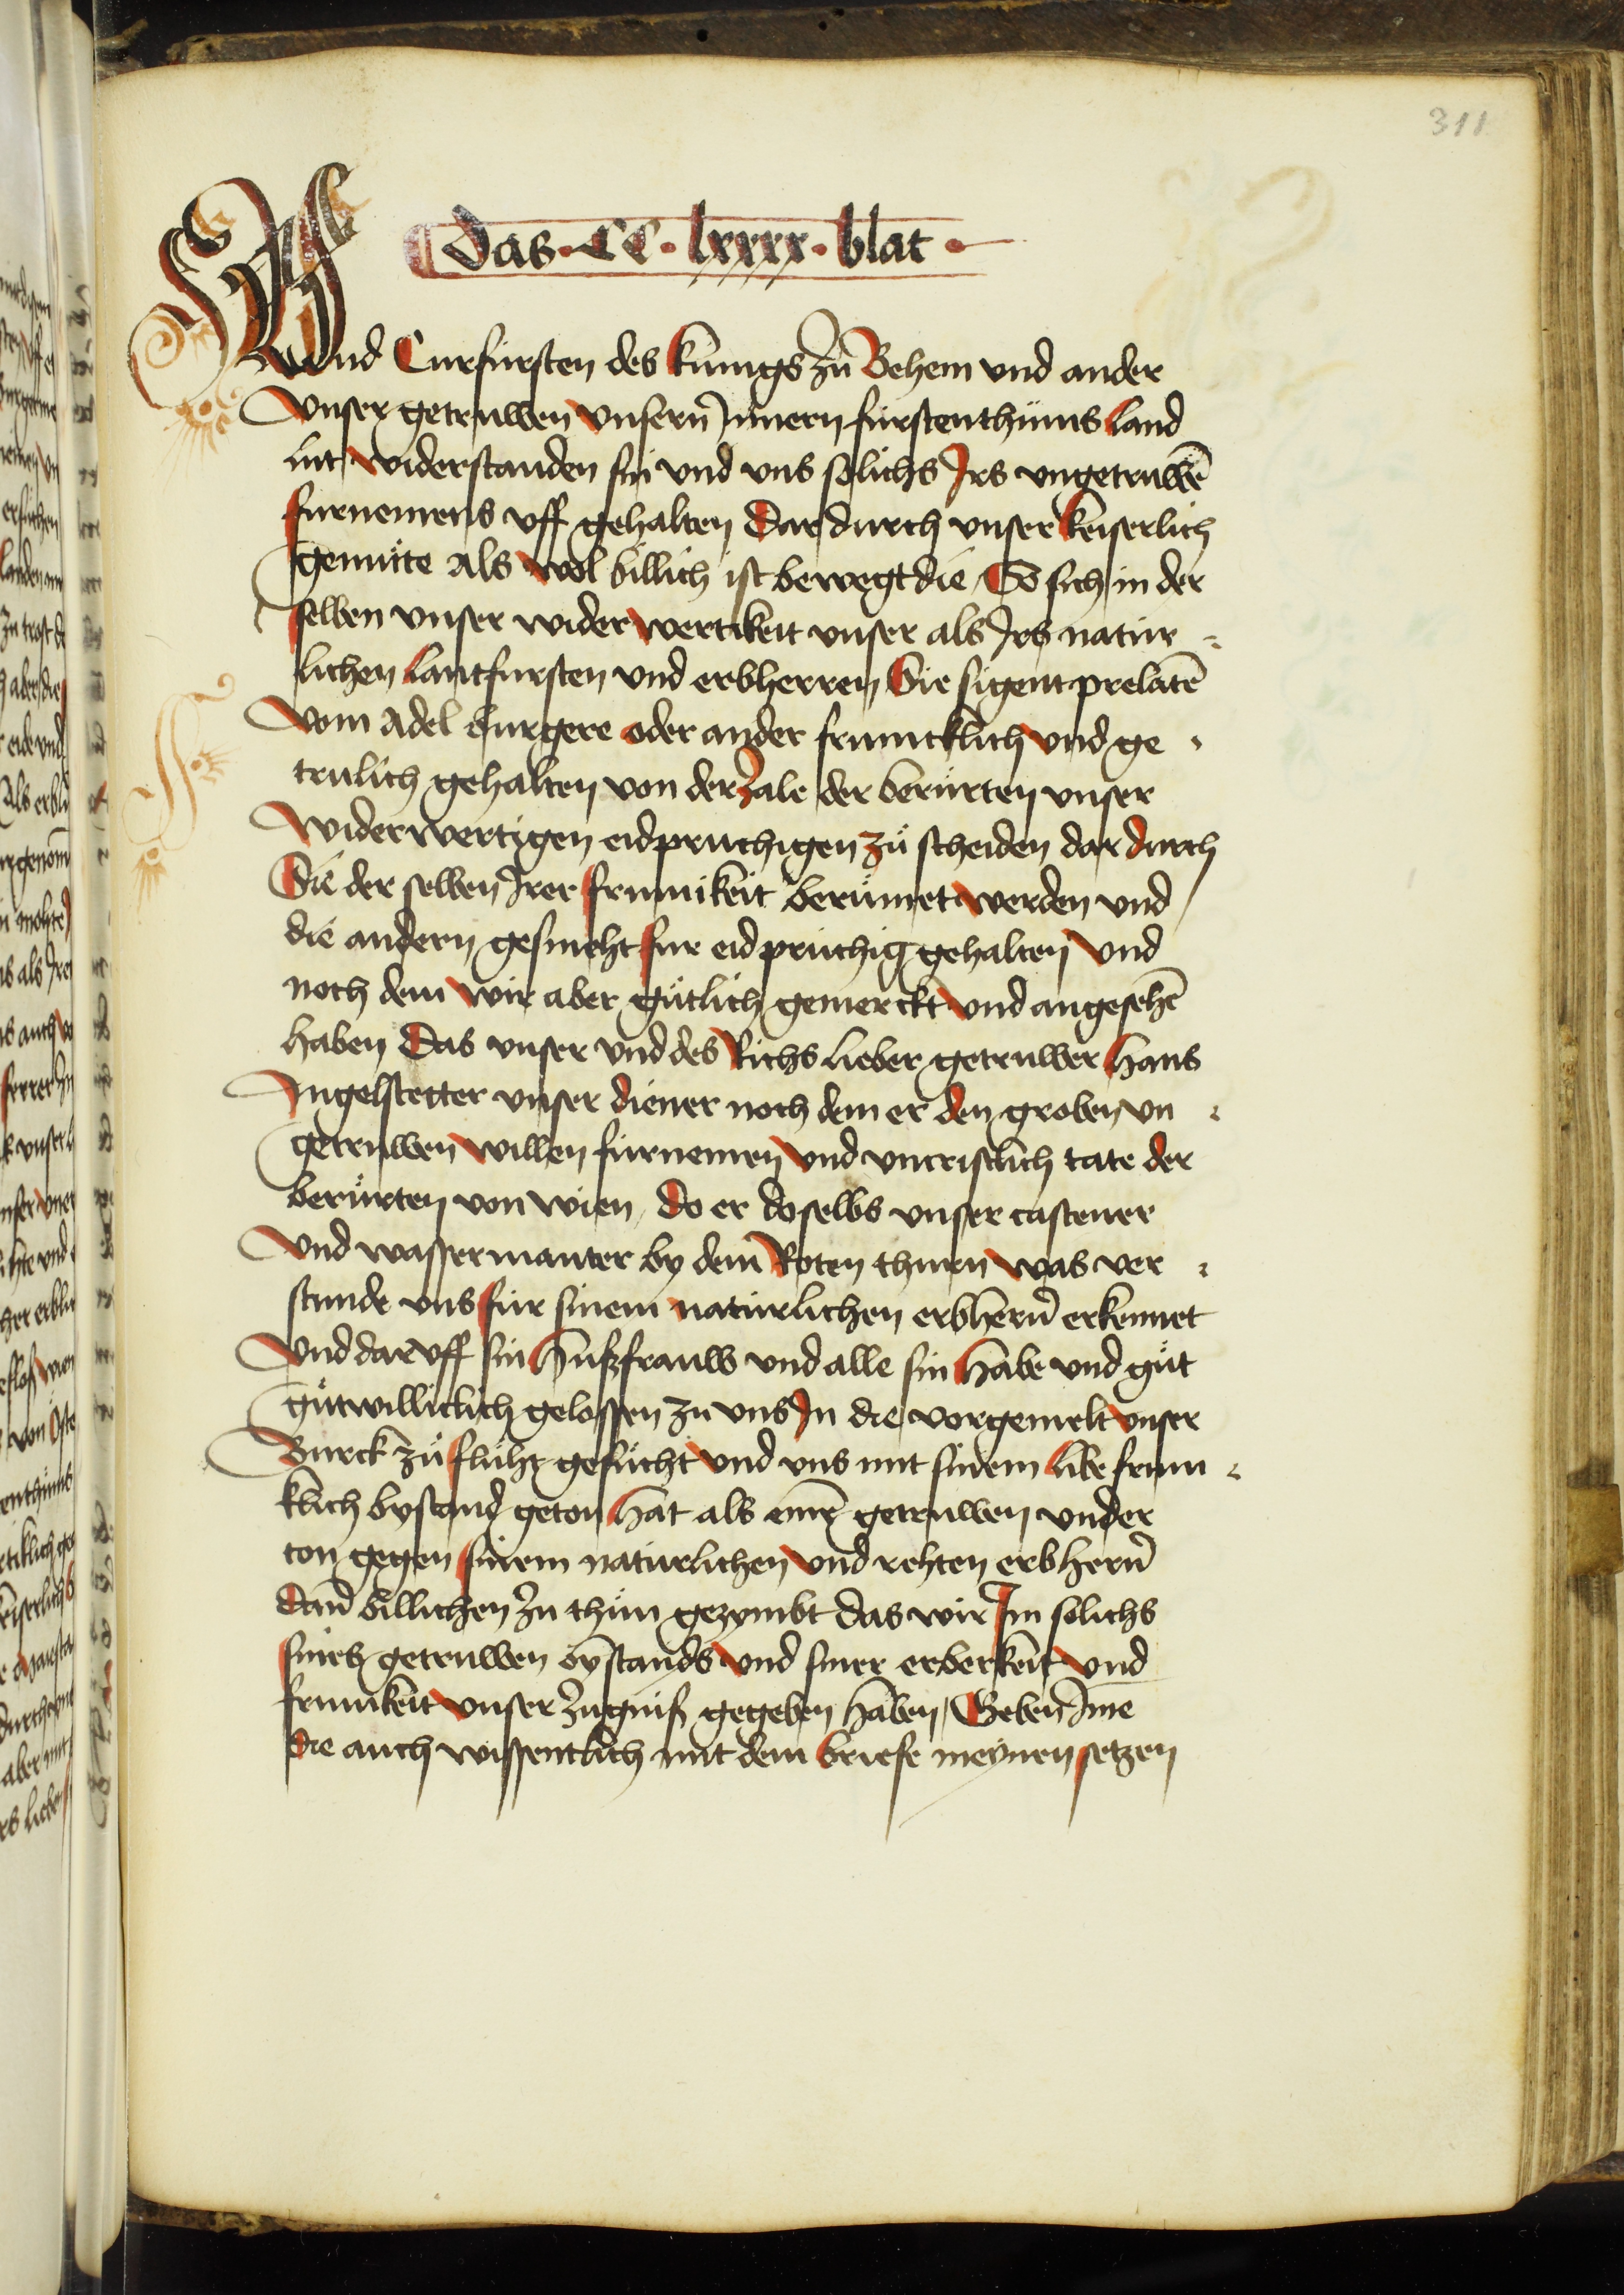 311
Das · CC · lxxxx · blat ·
Vnd Curfursten des kunigs zu Behem vnd ander
vnser getruwen vnsern Innern furstenthums land
lut widerstanden sin vnd vns solichs Irs vngetruwē
furnemens vff gehalten Dar durch vnser keiserlich
gemute Als wol billich ist bewegt die So sich in der
selben vnser wider wertikeit vnser als Irs natur
lichen lantfursten vnd erbherren Sie sigent prelatē
vom Adel burgere oder ander frumcklich vnd ge
trulich gehalten von der zale der berurten vnser
widerwertigen eidpruchigen zu scheiden dar durch
Sie der selben Irer frumikeit berumet werden vnd
die andern gesmeht fur eid pruchig gehalten vnd
noch dem wir aber gutlich gemerckt vnd angesehē
haben Das vnser vnd des Richs lieber getruwer hans
Ingelstetter vnser diener noch dem er den groben vn
getruwen willen furnemen vnd vncristlich tate der
berurten von wien do er doselbs vnser castener
vnd wassermauter by dem Roten thurn was ver
stunde vns fur sinem naturlichen erbhern erkennet
vnd dar vff sin hußfrauw vnd alle sin habe vnd gut
gutwilliclich gelossen zu vns In die vorgemelt vnser
Burck zu fluht gesucht vnd vns mit sinem libe frum
klich bystand geton hat als einē getruwen vnder
ton gegen sinem naturlichen vnd rehten erbhern
dan billichen zu thun gezymbt das wir Im solichs
sins getruwen bystands vnd siner erberkeit vnd
frumikeit vnser zugniß gegeben haben Geben Ime
die auch wissentlich mit dem briefe meynen setzen